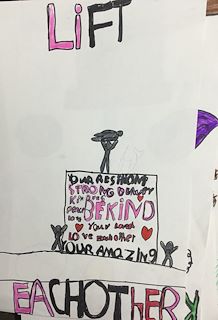 LiFT
OUR
STRONG
KIND
BEKIND
YOUR LOVED
LOVE EACHOTHER
YOUR AMAZING
EACHOTHER